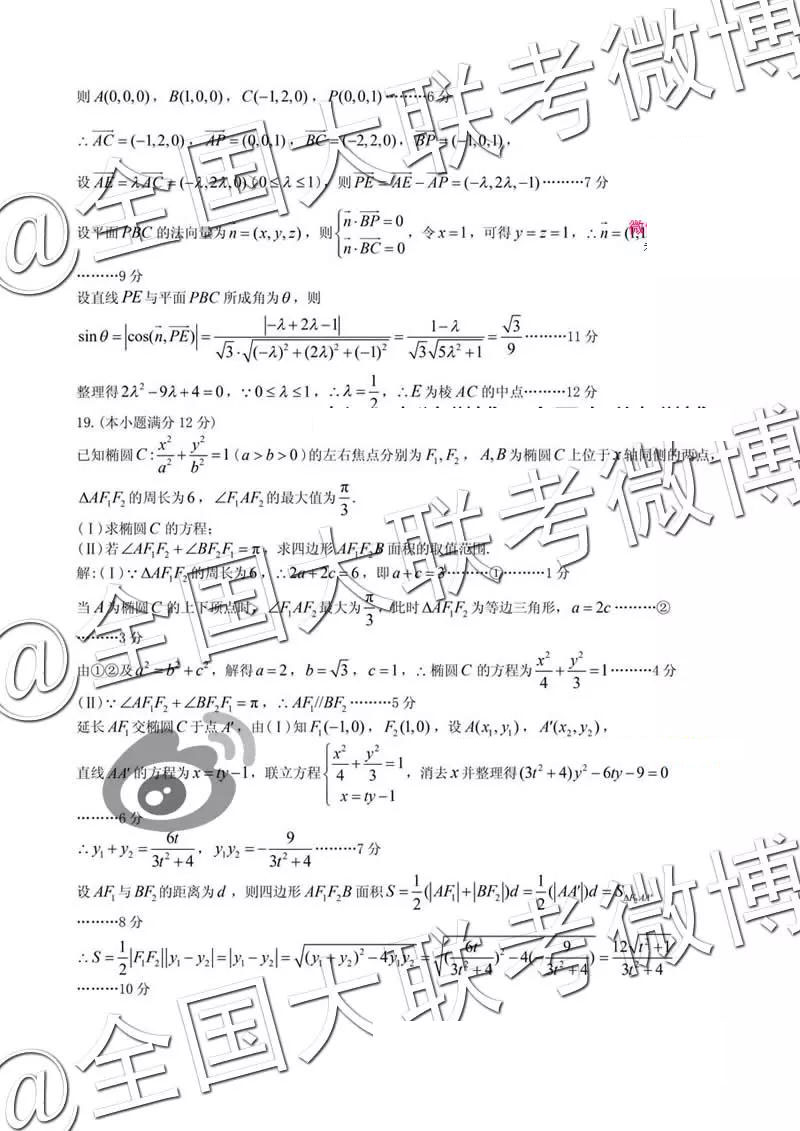 则 A(0,0,0), B(1,0,0), C(−1,2,0), P(0,0,1)………6分
∴ AC = (−1,2,0), AP = (0,0,1), BC = (−2,2,0), BP = (−1,0,1),
设 AE = λAC = (−λ,2λ,0) (0 ≤ λ ≤ 1), 则 PE = AE − AP = (−λ,2λ,−1)………7分
设平面 PBC 的法向量为 n = (x, y, z), 则 { n·BP = 0 n·BC = 0, 令 x = 1, 可得 y = z = 1, ∴ n = (1,1
………9分
设直线 PE 与平面 PBC 所成角为 θ, 则
sin θ = |cos(n, PE)| = |−λ + 2λ − 1| / (√3·√((−λ)² + (2λ)² + (−1)²)) = (1−λ) / (√3 √(5λ² + 1)) = √3/9 ………11分
整理得 2λ² − 9λ + 4 = 0, ∵ 0 ≤ λ ≤ 1, ∴ λ = 1/2, ∴ E 为棱 AC 的中点………12分
19.(本小题满分12分)
已知椭圆 C: x²/a² + y²/b² = 1 (a > b > 0) 的左右焦点分别为 F₁, F₂, A, B 为椭圆 C 上位于 x 轴同侧的两点,
ΔAF₁F₂ 的周长为 6, ∠F₁AF₂ 的最大值为 π/3.
(Ⅰ)求椭圆 C 的方程;
(Ⅱ)若 ∠AF₁F₂ + ∠BF₂F₁ = π, 求四边形 AF₁F₂B 面积的取值范围.
解:(Ⅰ)∵ ΔAF₁F₂ 的周长为 6, ∴ 2a + 2c = 6, 即 a + c = 3………①………1分
当 A 为椭圆 C 的上下顶点时, ∠F₁AF₂ 最大为 π/3, 此时 ΔAF₁F₂ 为等边三角形, a = 2c ………②
………3分
由①②及 a² = b² + c², 解得 a = 2, b = √3, c = 1, ∴ 椭圆 C 的方程为 x²/4 + y²/3 = 1………4分
(Ⅱ)∵ ∠AF₁F₂ + ∠BF₂F₁ = π, ∴ AF₁//BF₂ ………5分
延长 AF₁ 交椭圆 C 于点 A′, 由(Ⅰ)知 F₁(−1,0), F₂(1,0), 设 A(x₁, y₁), A′(x₂, y₂),
直线 AA′ 的方程为 x = ty − 1, 联立方程 { x²/4 + y²/3 = 1 x = ty − 1, 消去 x 并整理得 (3t² + 4)y² − 6ty − 9 = 0
………6分
∴ y₁ + y₂ = 6t/(3t² + 4), y₁y₂ = −9/(3t² + 4)………7分
设 AF₁ 与 BF₂ 的距离为 d, 则四边形 AF₁F₂B 面积 S = 1/2(|AF₁| + |BF₂|)d = 1/2(|AA′|)d = S_ΔF₂AA′
………8分
∴ S = 1/2|F₁F₂||y₁ − y₂| = |y₁ − y₂| = √((y₁ + y₂)² − 4y₁y₂) = √((6t/(3t² + 4))² − 4(−9/(3t² + 4))) = 12√(t² + 1)/(3t² + 4)
………10分
@全国大联考微博
@全国大联考微博
@全国大联考微博